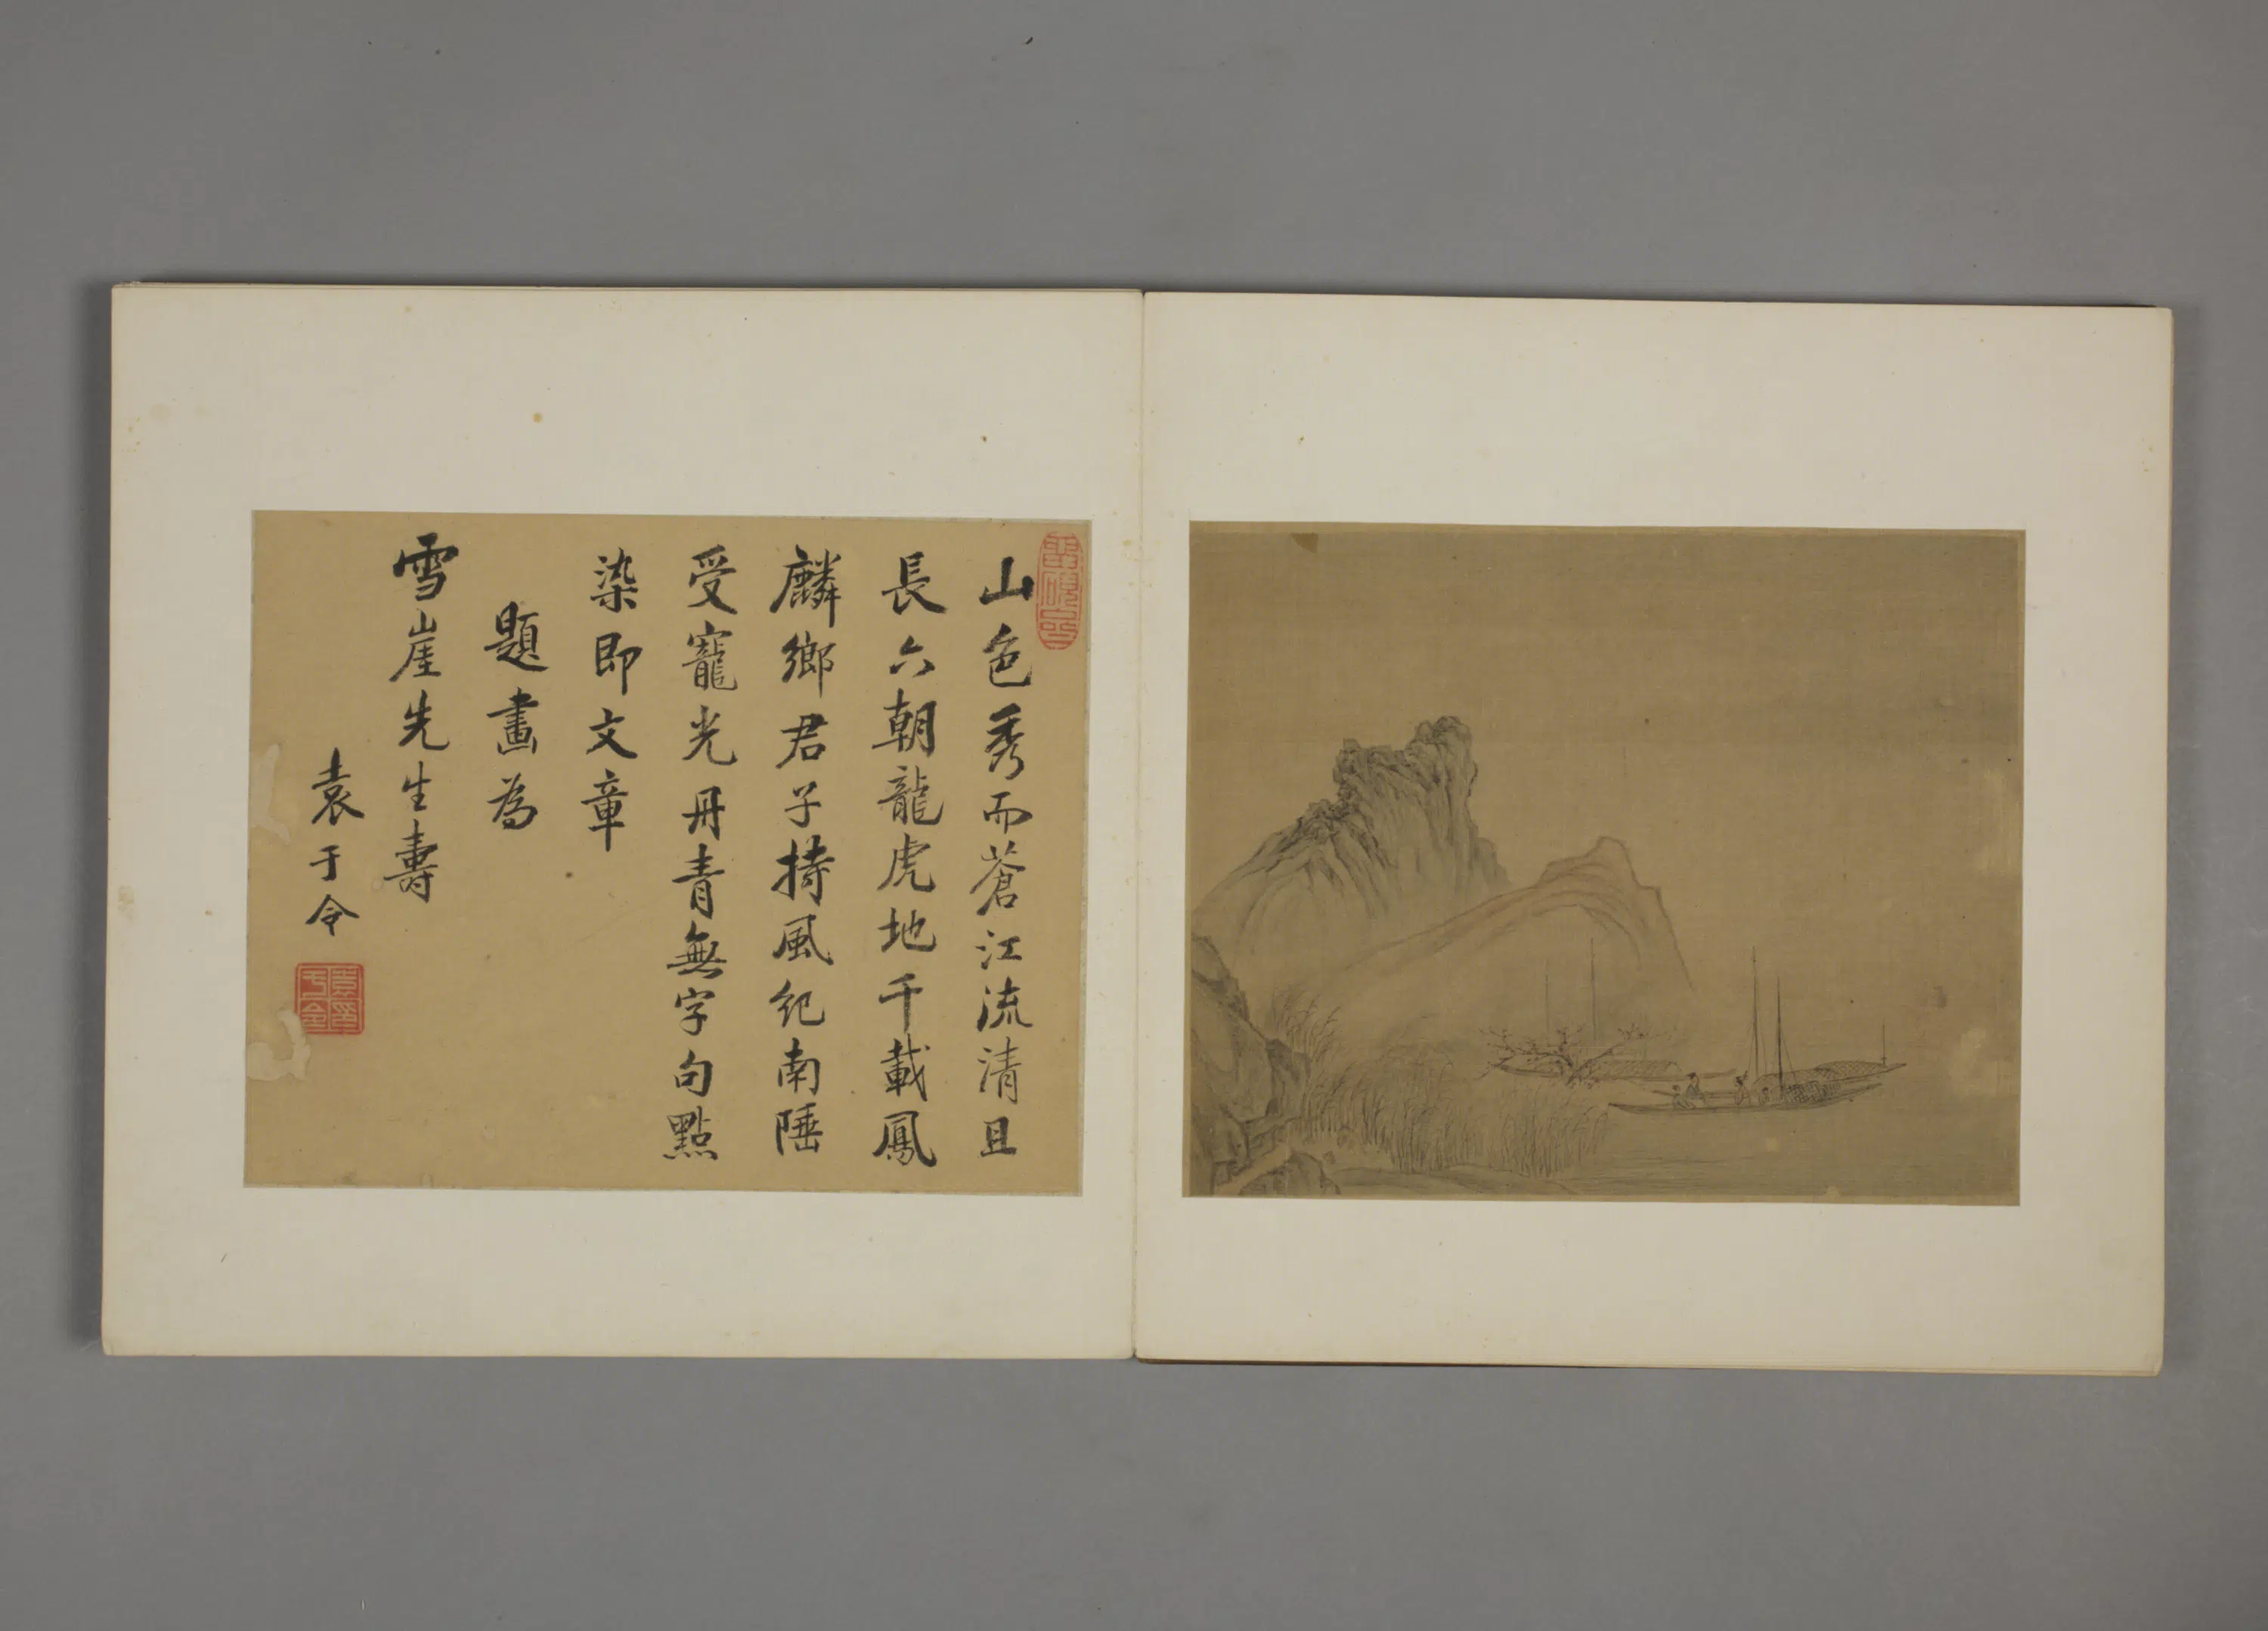 山色秀而蒼江流清且
長六朝龍虎地千載鳳
麟鄉君子持風紀南陲
受寵光丹青無字句點
染即文章
題畫為
雪崖先生壽
袁于令
袁于令印